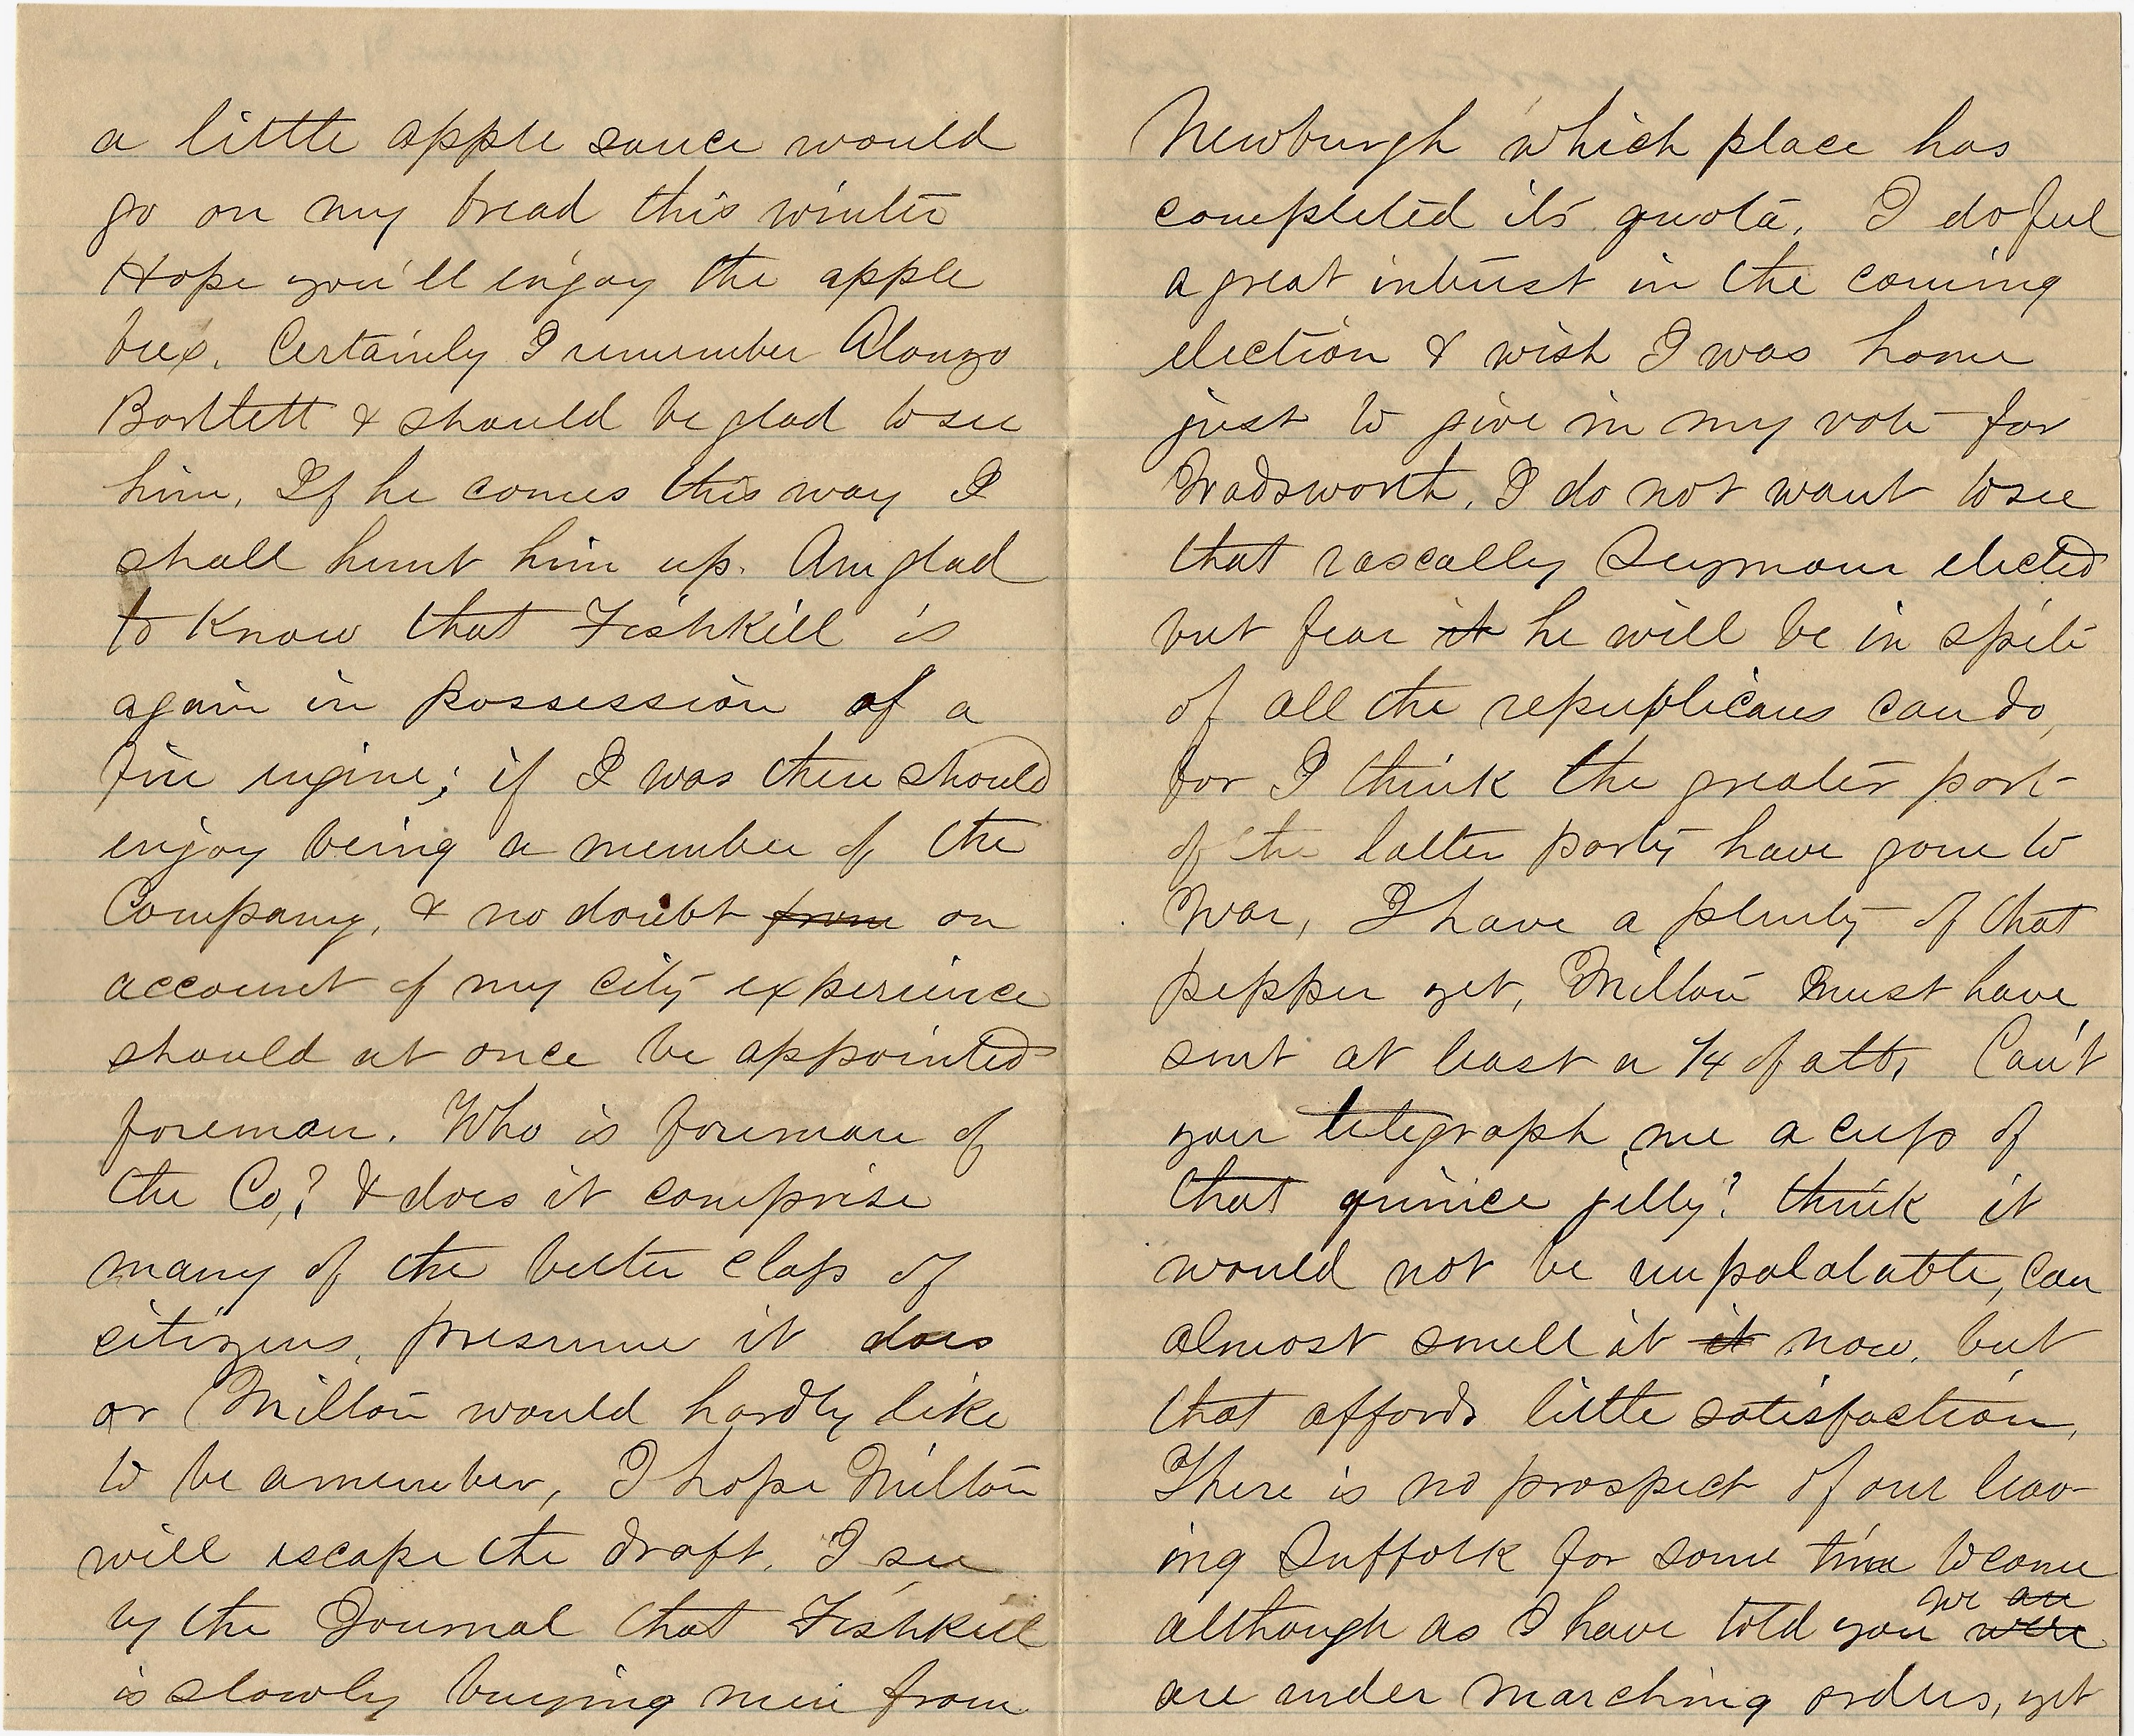 a little apple sauce would
go on my bread this winter
Hope you'll enjoy the apple
bees. Certainly I remember Alonzo
Bartlett & should be glad to see
him, If he comes this way I
shall hunt him up. Am glad
to Know that Fishkill is
again in possession of a
fire engine; if I was there should
enjoy being a member of the
Company, & no doubt from on
account of my city experience
should at once be appointed
foreman. Who is foreman of
the Co,? & does it comprise
many of the better class of
citizens, presume it does
or Milton would hardly like
to be a member, I hope Milton
will escape the draft. I see
by the Journal that Fishkill
is slowly buying men from
Newburgh which place has
completed its quota, I do feel
a great interest in the coming
election & wish I was home
just to give in my vote for
Wadsworth, I do not want to see
that rascally Seymour elected
but fear it he will be in spite
of all the republicans can do,
for I think the greater part
of the latter party have gone to
war, I have a plenty of that
pepper yet, Milton must have
sent at least a 1/4 of a lb, Can't
you telegraph me a cup of
that quince jelly? think it
would not be unpalatable, can
almost smell it it now, but
that affords little satisfaction,
There is no prospect of our leav-
ing Suffolk for some time to come
although as I have told you we are were
are under marching orders, yet